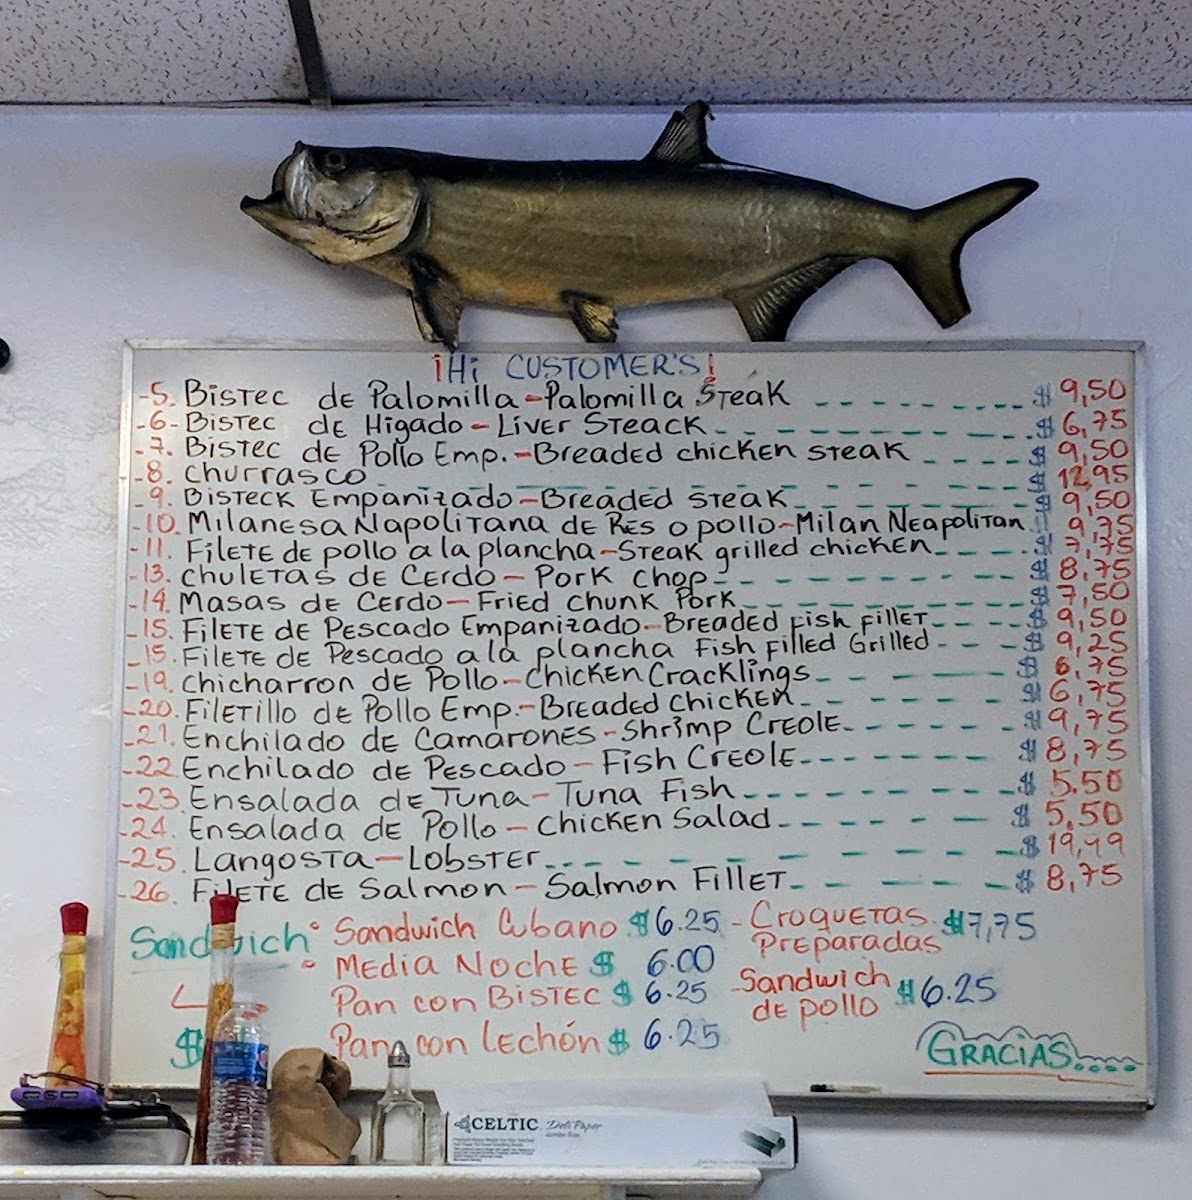 ¡Hi CUSTOMER'S!
-5. Bistec de Palomilla-Palomilla Steak $ 9,50
-6- Bistec de Higado-Liver Steack $ 6,75
-7. Bistec de Pollo Emp.-Breaded chicken steak $ 9,50
-8. Churrasco $ 12,95
-9. Bisteck Empanizado-Breaded steak $ 9,50
-10. Milanesa Napolitana de Res o pollo-Milan Neapolitan $ 9,75
-11. Filete de pollo a la plancha-Steak grilled chicken $ 7,75
-13. Chuletas de Cerdo-Pork Chop $ 8,75
-14. Masas de Cerdo-Fried chunk Pork $ 7,50
-15. Filete de Pescado Empanizado-Breaded fish fillet $ 9,50
-15. Filete de Pescado a la plancha Fish Filled Grilled $ 9,25
-19. Chicharron de Pollo-Chicken Cracklings $ 6,75
-20. Filetillo de Pollo Emp.-Breaded Chicken $ 6,75
-21. Enchilado de Camarones-Shrimp Creole $ 9,75
-22 Enchilado de Pescado-Fish Creole $ 8,75
-23. Ensalada de Tuna-Tuna Fish $ 5.50
-24. Ensalada de Pollo-Chicken Salad $ 5,50
-25. Langosta-Lobster $ 19,99
-26. Filete de Salmon-Salmon Fillet $ 8,75
Sandwich
Sandwich Cubano $6.25
Media Noche $ 6.00
Pan con Bistec $ 6.25
Pan con Lechón $ 6.25
$
-Croquetas Preparadas $7,75
-Sandwich de pollo $6.25
Gracias....
CELTIC Deli Paper